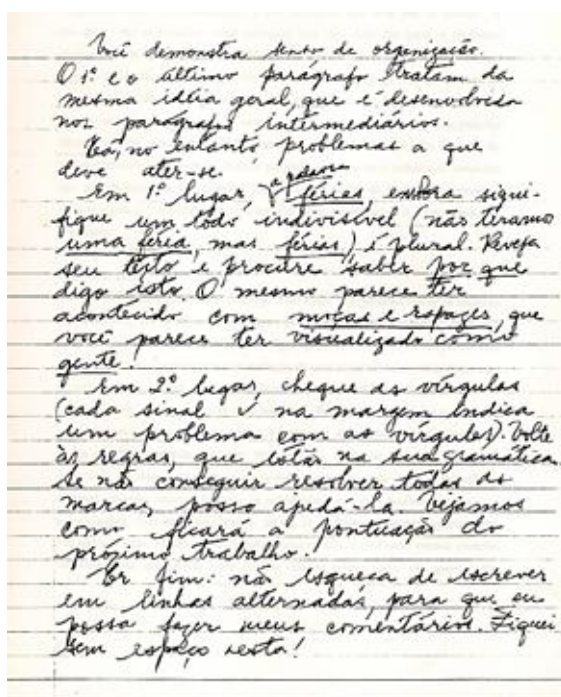 Você demonstra senso de organização.
O 1º e o último parágrafo tratam da
mesma idéia geral, que é desenvolvida
nos parágrafos intermediários.
Há, no entanto, problemas a que
deve ater-se.
Em 1º lugar, a palavra férias, embora signi-
fique um todo indivisível (não tiramos
uma féria, mas férias) é plural. Reveja
seu texto e procure saber por que
digo isto. O mesmo parece ter
acontecido com moças e rapazes, que
você parece ter visualizado como
gente.
Em 2º lugar, cheque as vírgulas
(cada sinal v na margem indica
um problema com as vírgulas). Volte
às regras, que estão na sua gramática.
Se não conseguir resolver todas as
marcas, posso ajudá-la. Vejamos
como ficará a pontuação do
próximo trabalho.
Por fim: não esqueça de escrever
em linhas alternadas, para que eu
possa fazer meus comentários. Fiquei
sem espaço nesta!